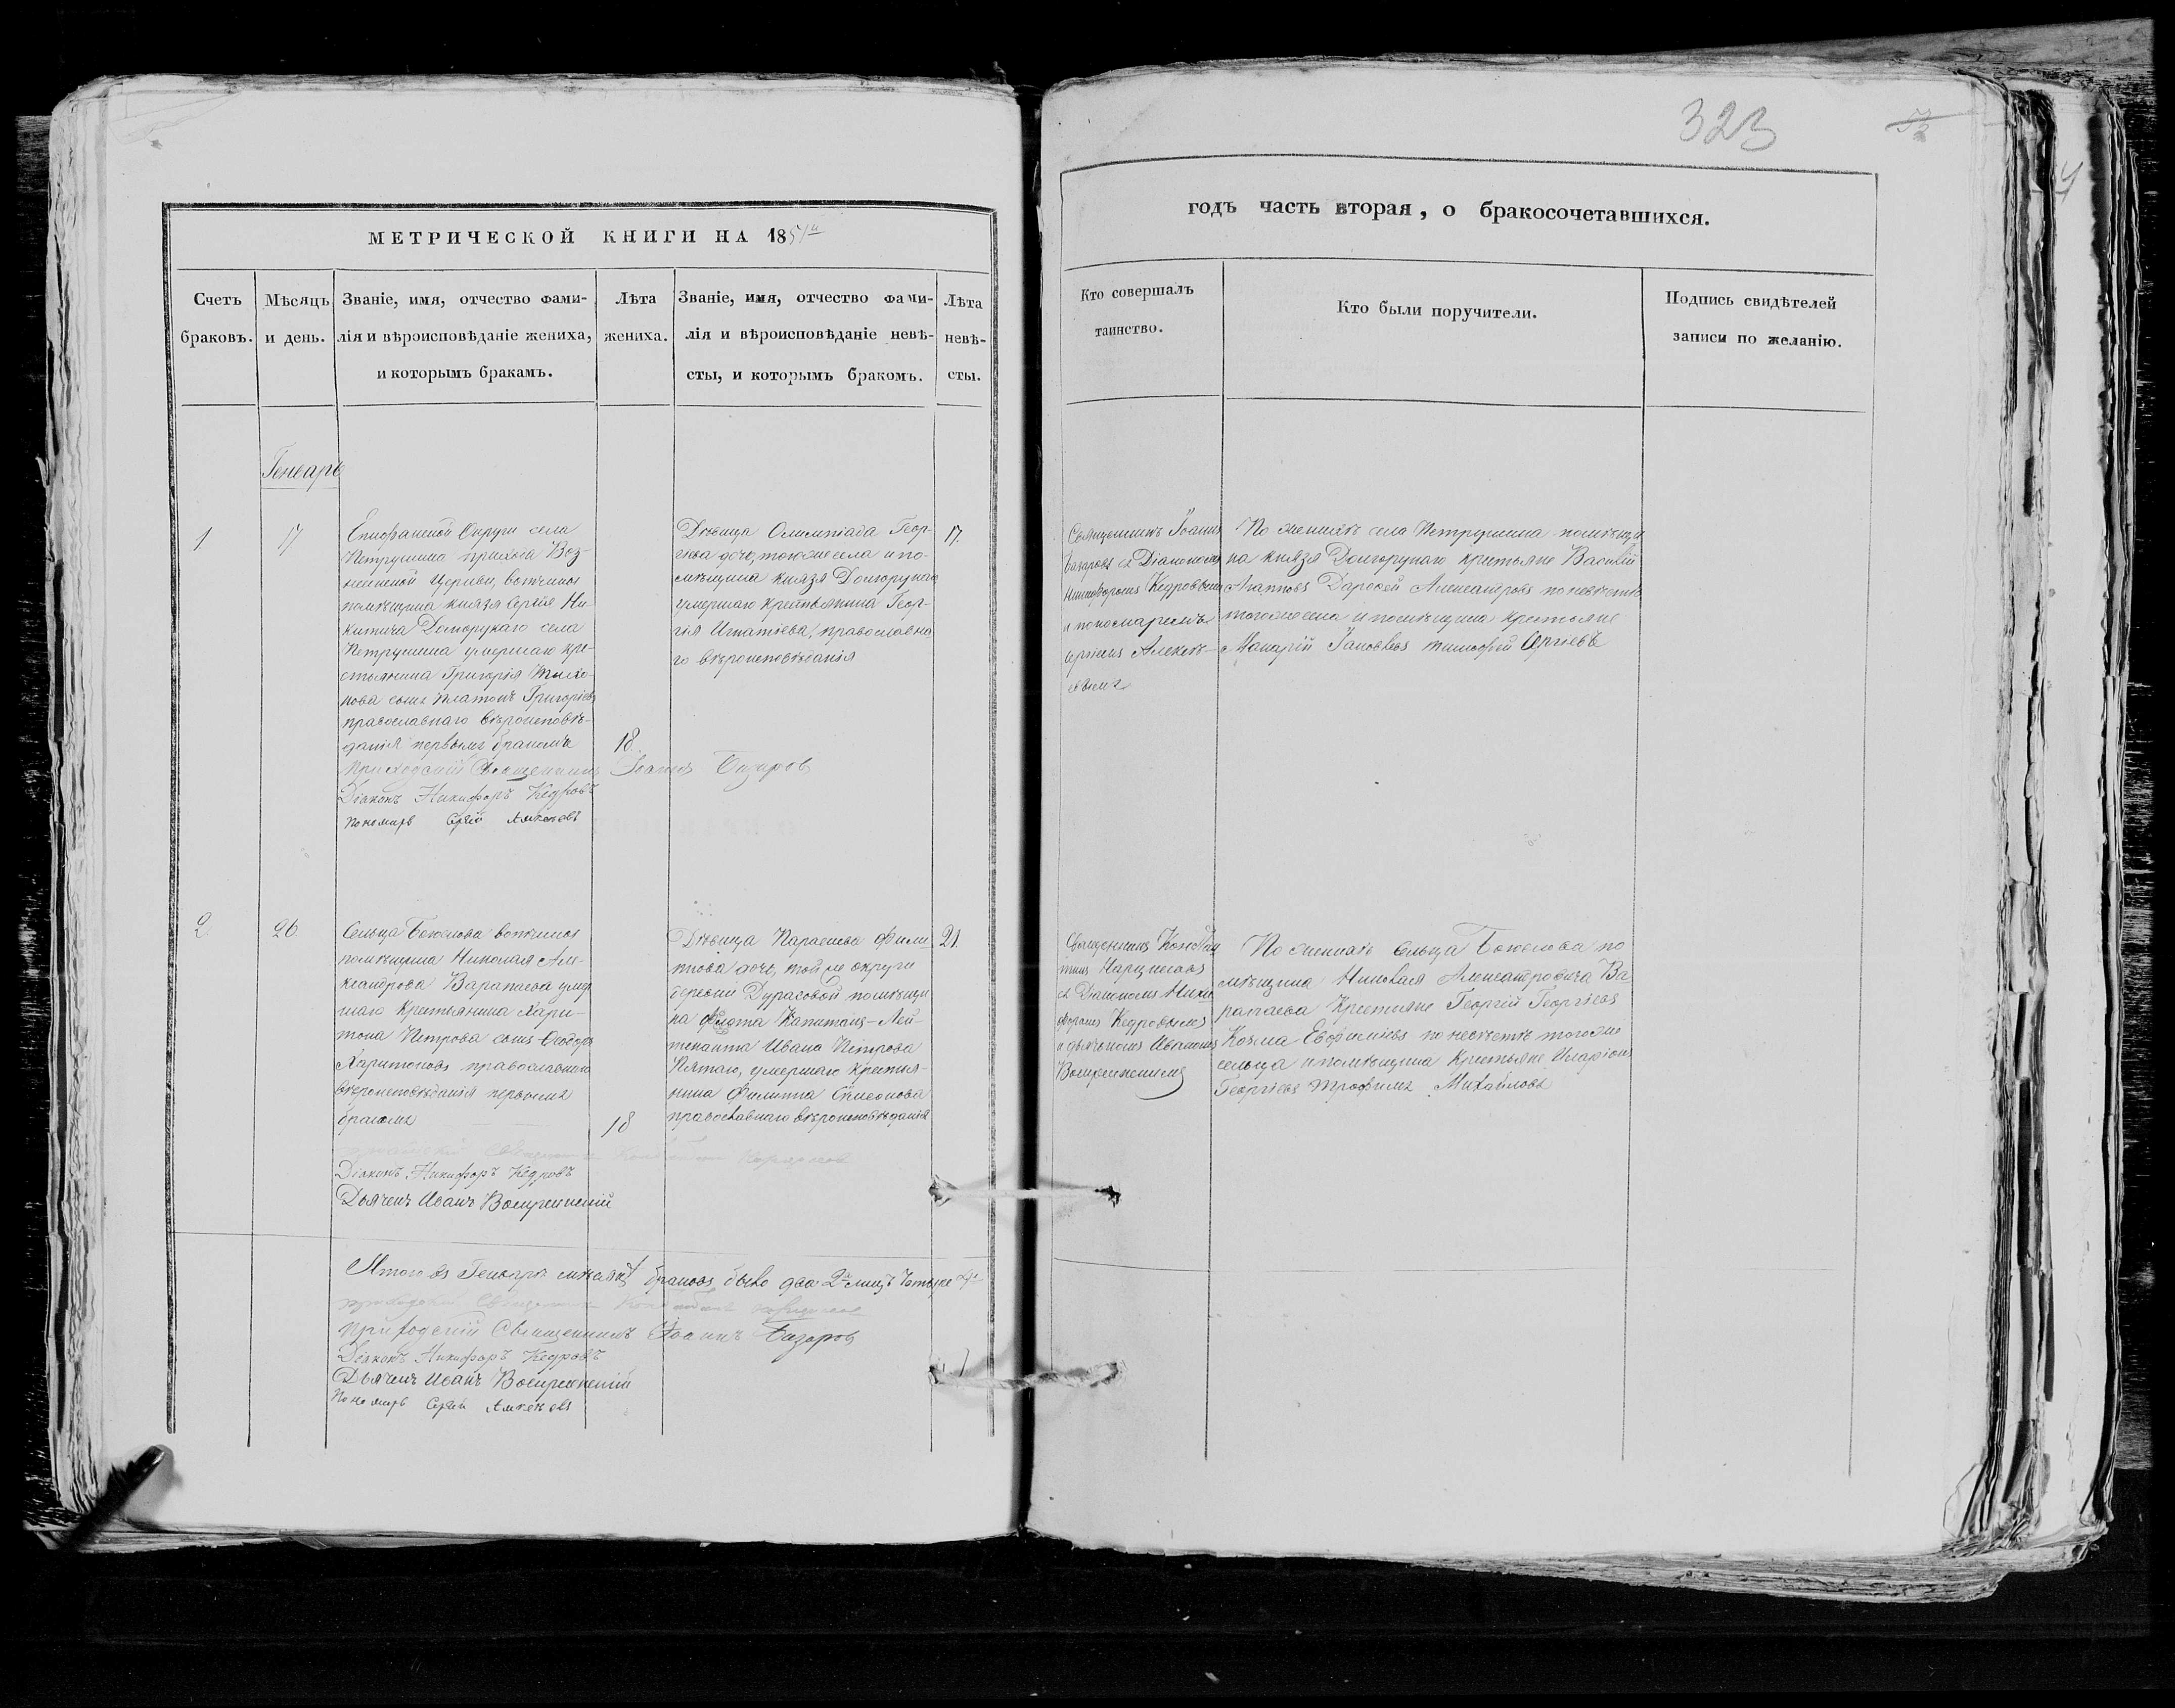 323
МЕТРИЧЕСКОЙ КНИГИ НА 1851й
годъ часть вторая, о бракосочетавшихся.
Счетъ браковъ.
Мѣсяцъ и день.
Званіе, имя, отчество фами-
лія и вѣроисповѣданіе жениха,
и которымъ бракамъ.
Лѣта
жениха.
Званіе, имя, отчество фами-
лія и вѣроисповѣданіе невѣ-
сты, и которымъ бракомъ.
Лѣта
невѣ-
сты.
Кто совершалъ
таинство.
Кто были поручители.
Подпись свидѣтелей
записи по желанію.
Генварь
1.
17
Епифанской Округи села
Петрушина прихода Воз-
несенской Церкви, вотчины
помѣщика князя Сергія Ни-
китича Долгорукаго села
Петрушина умершаго кре-
стьянина Григорія Тихо-
нова сынъ Платонъ Григорьевъ
православнаго вѣроисповѣ-
данія первымъ бракомъ
18.
Приходскій Священникъ Іоаннъ Базаровъ
Діаконъ Никифоръ Кедровъ
Пономарь Сергѣй Алексѣевъ
Дѣвица Олимпіада Геор-
гіева дочь, тогоже села и по-
мѣщика князя Долгорукаго
умершаго крестьянина Геор-
гія Игнатіева, православна
го вѣроисповѣданія
17.
Священникъ Іоаннъ
Базаровъ съ Діакономъ
Никифоромъ Кедровымъ
и пономаремъ
Сергіемъ Алексѣ-
евымъ
По женихѣ села Петрушина помѣщи
ка князя Долгорукаго крестьяне Василій
Агаповъ Дороѳей Александровъ по невѣстѣ
тогоже села и помѣщика Крестьяне
Макарій Іаковлевъ Тимофей Сергіевъ
2.
26.
Сельца вотчины
помѣщика Николая Але-
ксандрова Варапаева умер
шаго Крестьянина Хари-
тона Петрова сынъ Ѳеодоръ
Харитоновъ православнаго
вѣроисповѣданія первымъ
бракомъ
18
Діаконъ Никифоръ Кедровъ
Дьячекъ Иванъ Воскресенскій
Дѣвица Параскева Фили
пова дочь, той же округи
деревни Дураковой помѣщи
ка Флота Капитанъ-Лей-
тенанта Ивана Петрова
Пятаго, умершаго Крестья-
нина Филиппа Симеонова
православнаго вѣроисповѣданія
21.
Священникъ Констан
тинъ
съ Діакономъ Ники
форомъ Кедровымъ
и дьячькомъ Иваномъ
Воскресенскимъ
По женихѣ Сельца по
мѣщика Николая Александровича Ва
рапаева Крестьяне Георгій Георгіевъ
Козма Евфиміевъ по невѣстѣ тогоже
сельца и помѣщика Крестьяне Иларіонъ
Георгіевъ Трофимъ Михайловъ
Итого въ Генварѣ мѣсяцѣ браковъ было два 2 лицъ четыре 4.
Приходскій Священникъ Іоаннъ Базаровъ
Діаконъ Никифоръ Кедровъ
Дьячекъ Иванъ Воскресенскій
Пономарь Сергѣй Алексѣевъ